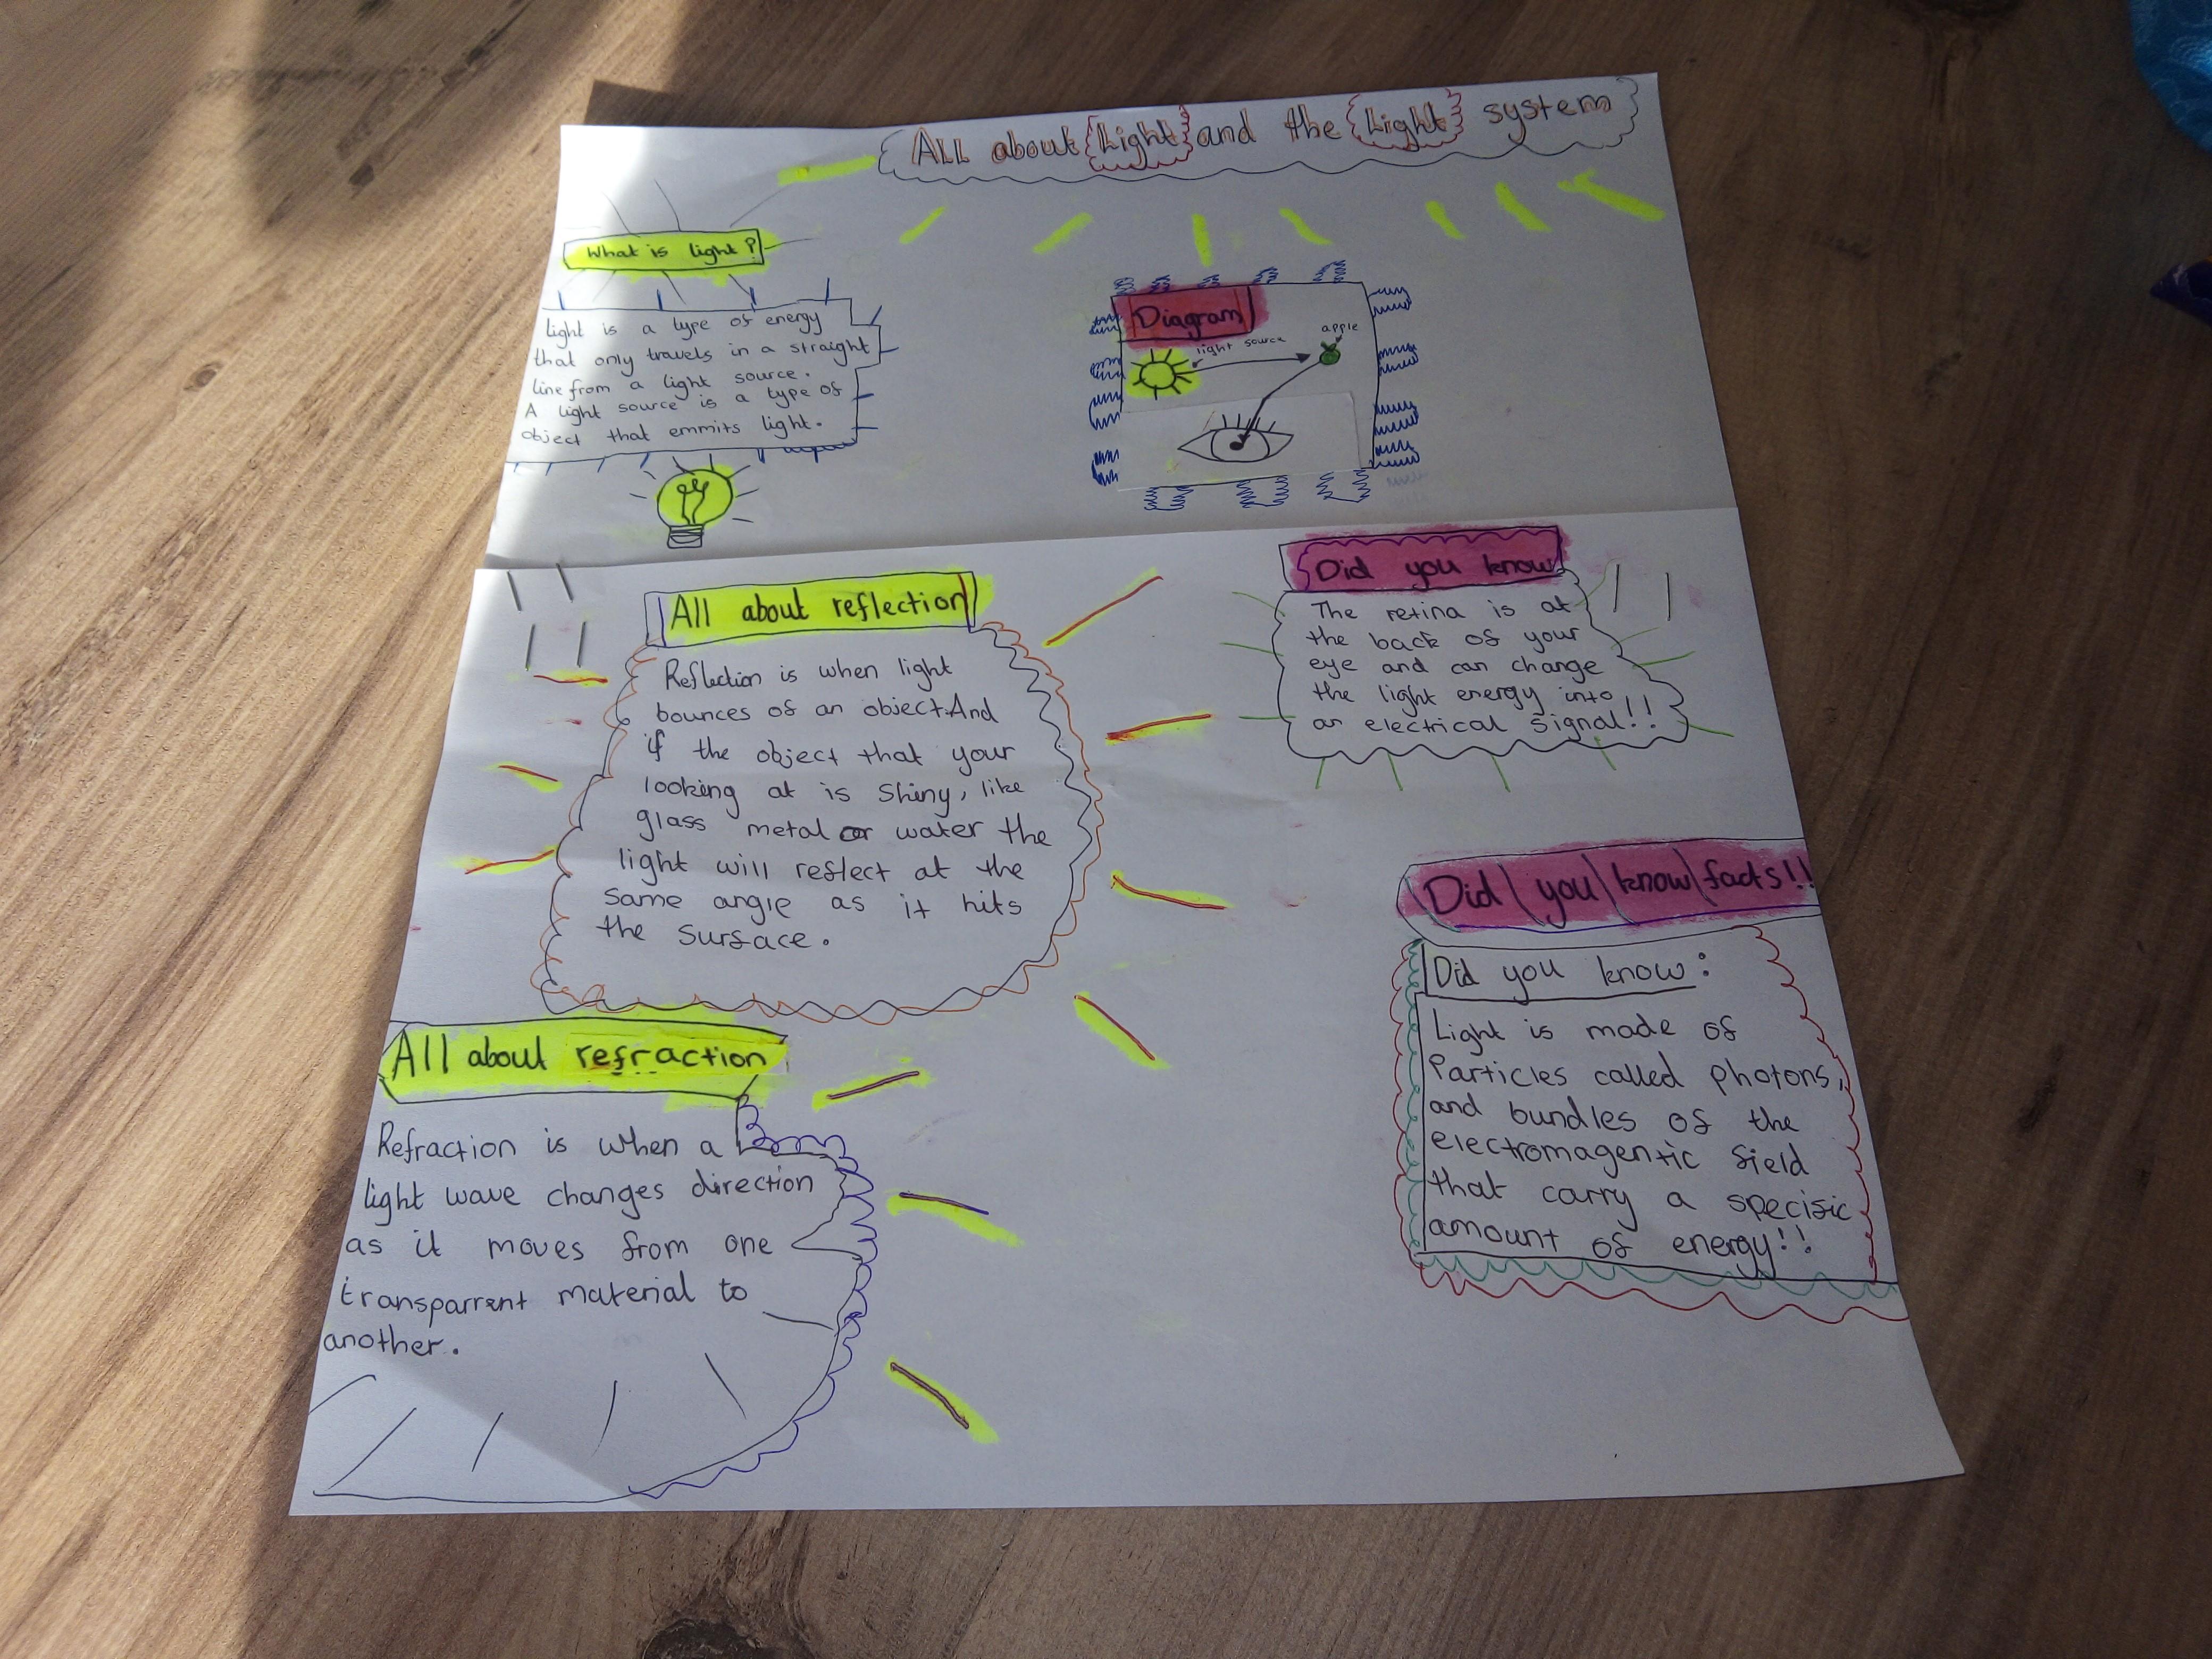 All about Light and the Light system
What is light?
Light is a type of energy
that only travels in a straight
line from a light source.
A light source is a type of
object that emmits light.
Diagram
light source
apple
All about reflection
Reflection is when light
bounces of an object.And
if the object that your
looking at is shiny, like
glass metal or water the
light will reflect at the
same angle as it hits
the surface.
Did you know
The retina is at
the back of your
eye and can change
the light energy into
an electrical signal!!
Did you know facts!!
Did you know:
Light is made of
Particles called photons,
and bundles of the
electromagentic field
that carry a specific
amount of energy!!
All about refraction
Refraction is when a
light wave changes direction
as it moves from one
transparrent material to
another.